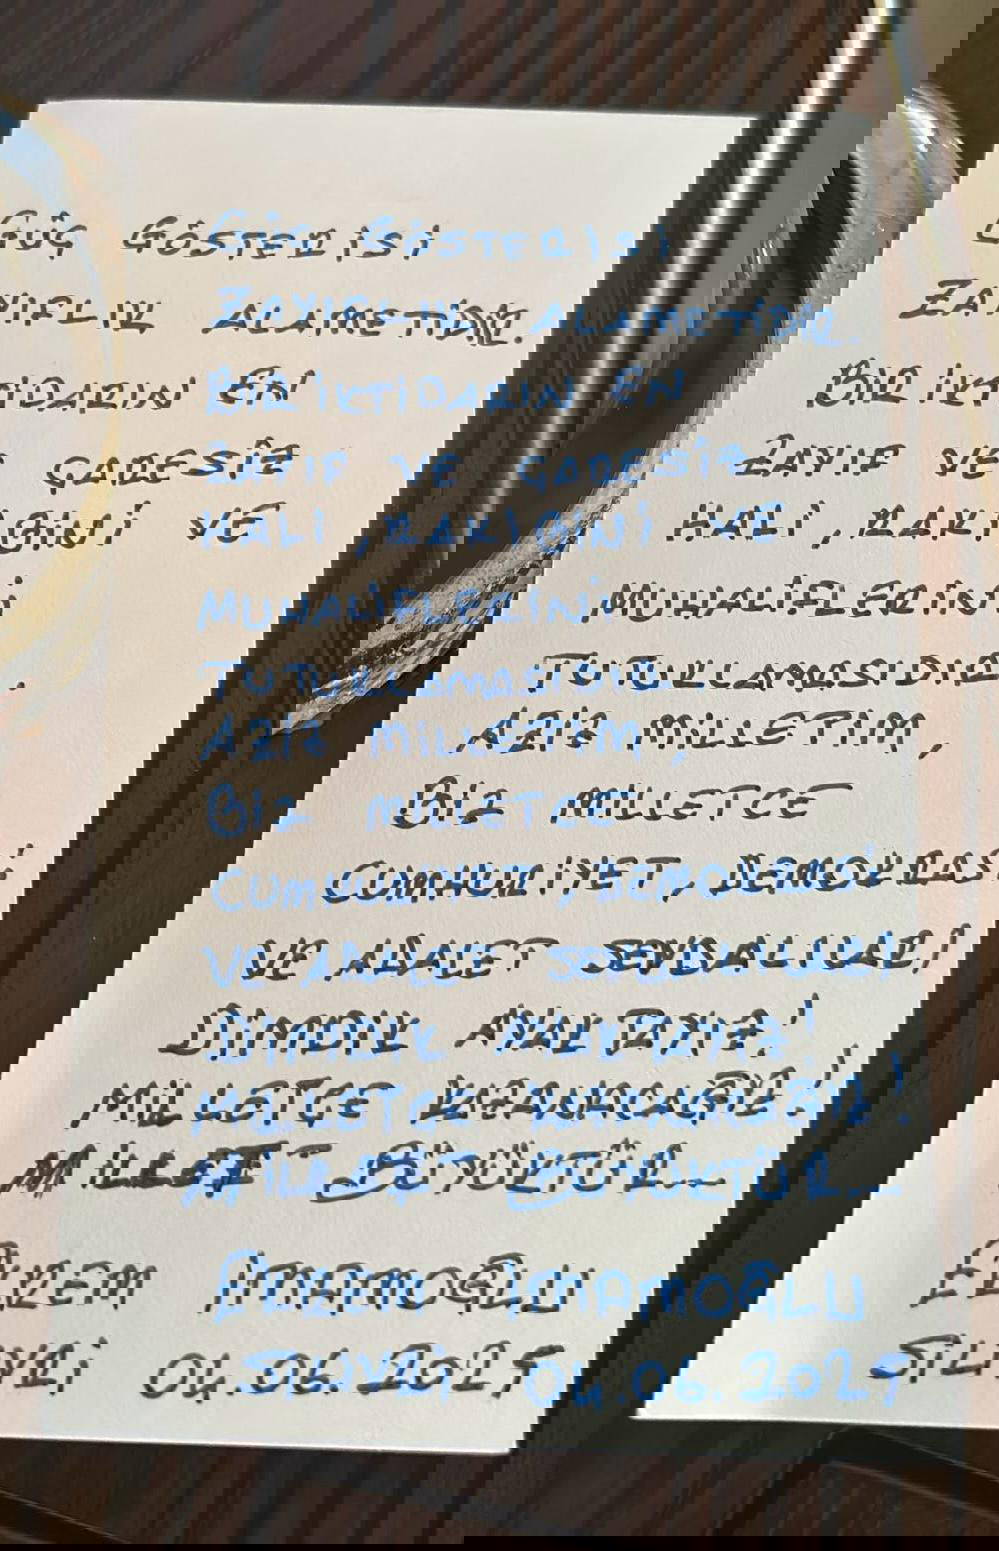 GÜÇ GÖSTERİSİ
ZAYIFLIK ALAMETİDİR.
BİR İKTİDARIN EN
ZAYIF VE ÇARESİZ
HALİ, RAKİBİNİ VE
MUHALİFLERİNİ
TUTUKLAMASIDIR.
AZİZ MİLLETİM,
BİZ MİLLETCE
CUMHURİYET, DEMOKRASİ
VE ADALET SEVDALILARI
DİMDİK AYAKTAYIZ!
MİLLETCE KAZANACAĞIZ!
MİLLET BÜYÜKTÜR...
EKREM İMAMOĞLU
SİLİVRİ 04.06.2025